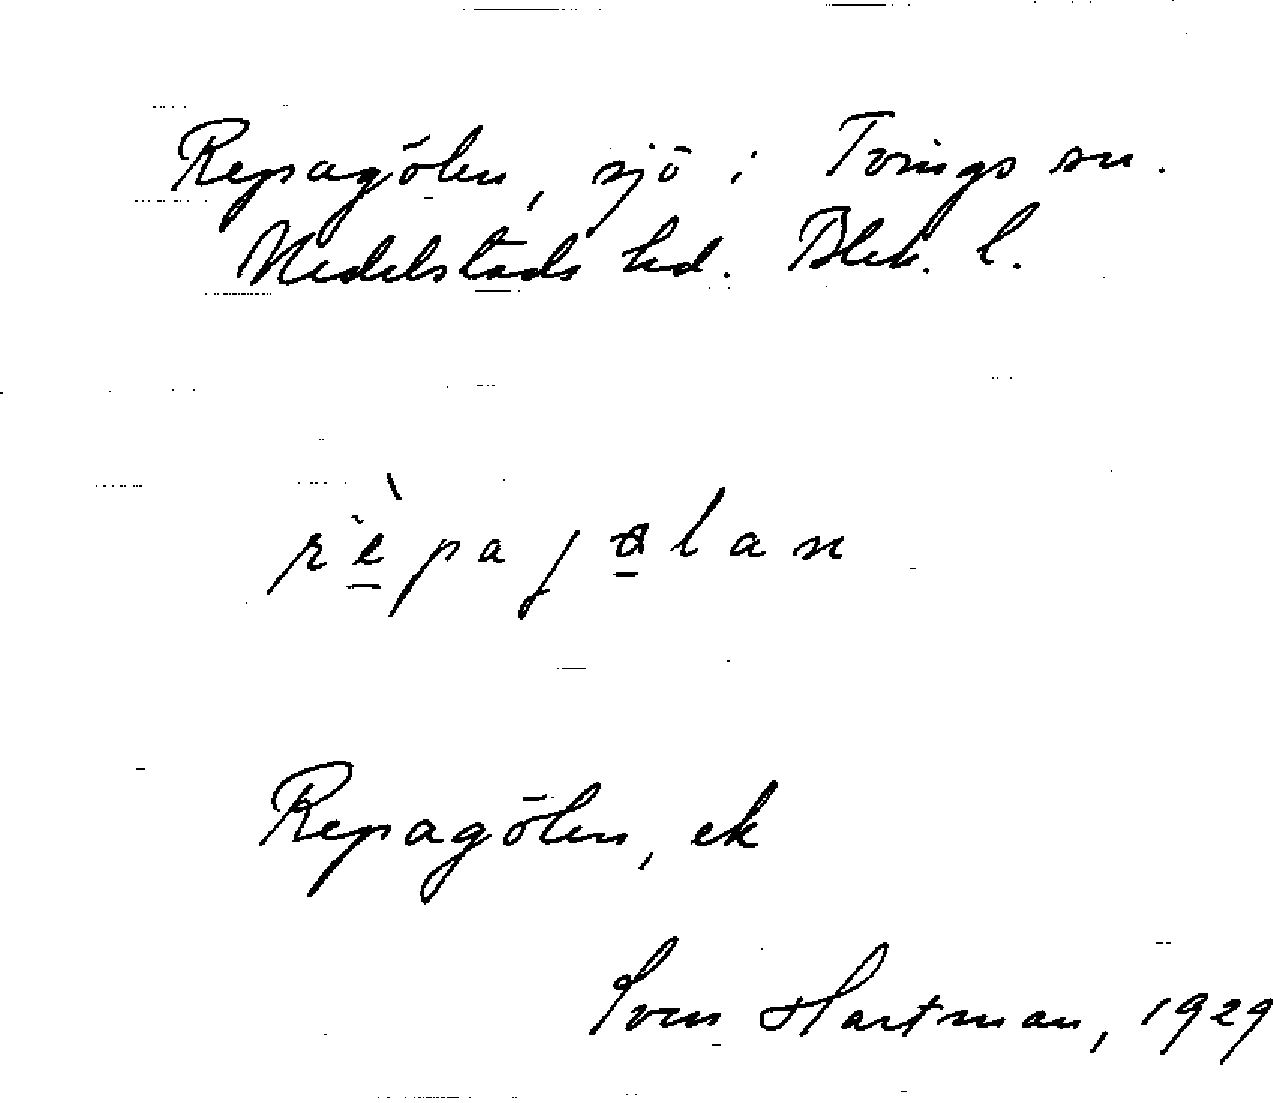 Repagölen, sjö i Tvings sn.
Medelstads hd. Blek. l.
Repagölen, ek
Sven Hartman, 1929